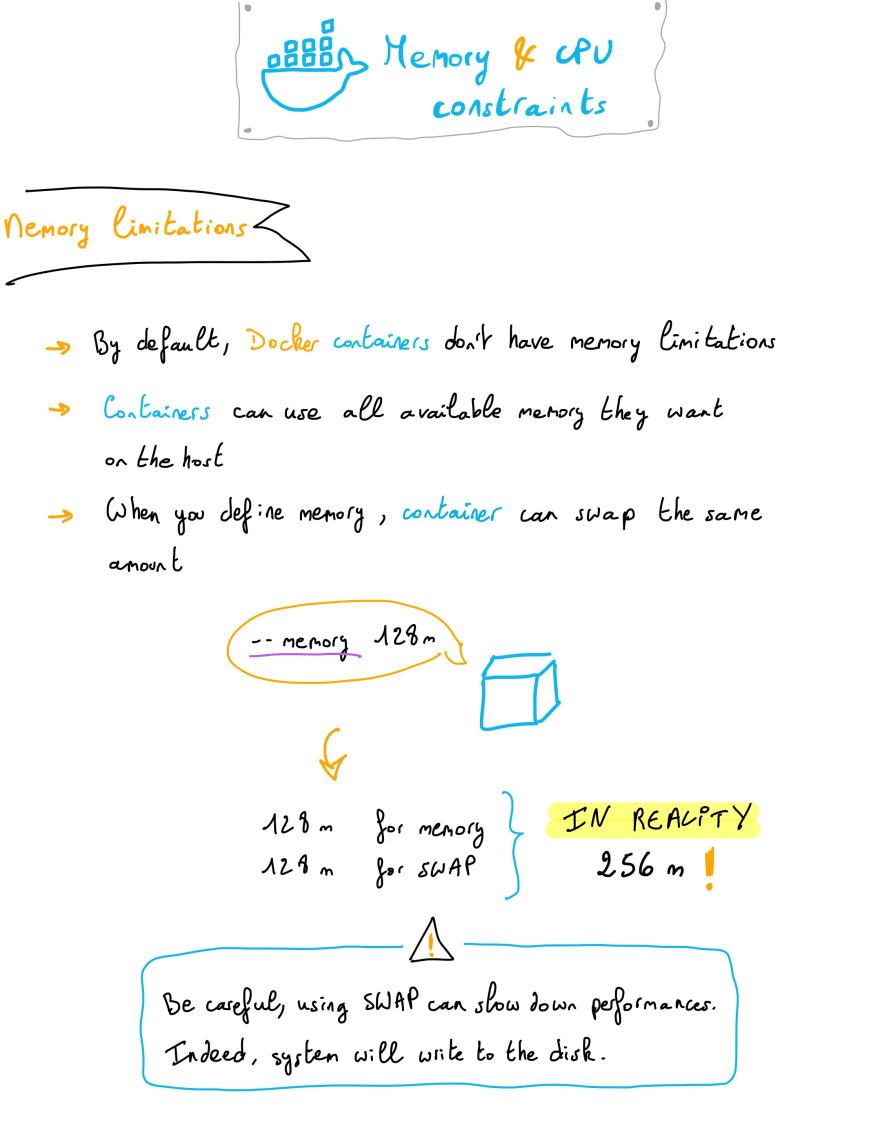 Memory & CPU
constraints
Memory limitations
→ By default, Docker containers don't have memory limitations
→ Containers can use all available memory they want
on the host
→ When you define memory, container can swap the same
amount
-- memory 128m
128 m for memory
128 m for SWAP
IN REALITY
256 m !
!
Be careful, using SWAP can slow down performances.
Indeed, system will write to the disk.